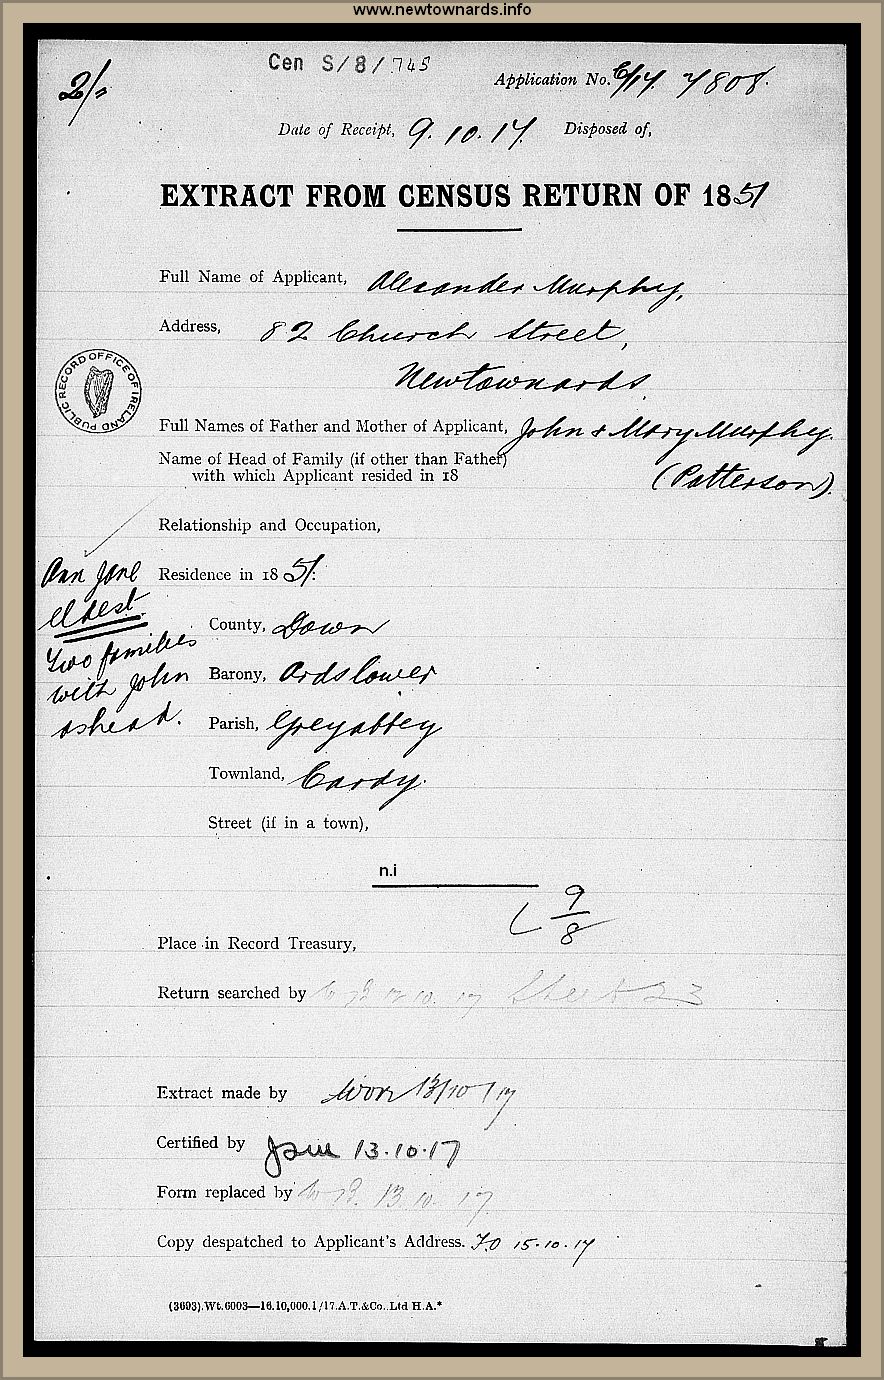 www.newtownards.info
Cen S/8/745
2/-
Application No. C/17. 7808.
Date of Receipt, 9.10.17. Disposed of,
EXTRACT FROM CENSUS RETURN OF 1851
Full Name of Applicant, Alexander Murphy,
Address, 82 Church Street,
Newtownards
PUBLIC RECORD OFFICE OF IRELAND
Full Names of Father and Mother of Applicant, John & Mary Murphy.
Name of Head of Family (if other than Father)
with which Applicant resided in 18
(Patterson).
Relationship and Occupation,
Ann Jane
eldest.
Two families
with John
as head.
Residence in 1851.
County, Down
Barony, Ards lower
Parish, Greyabbey
Townland, Cardy.
Street (if in a town),
n.i
9/8
Place in Record Treasury,
Return searched by 12.10.17 Sheet 23
Extract made by 13/10/17
Certified by 13.10.17
Form replaced by 13.10.17
Copy despatched to Applicant's Address. 15.10.17
(3693).Wt.6003—16.10,000.1/17.A.T.&Co.,Ltd H.A.*